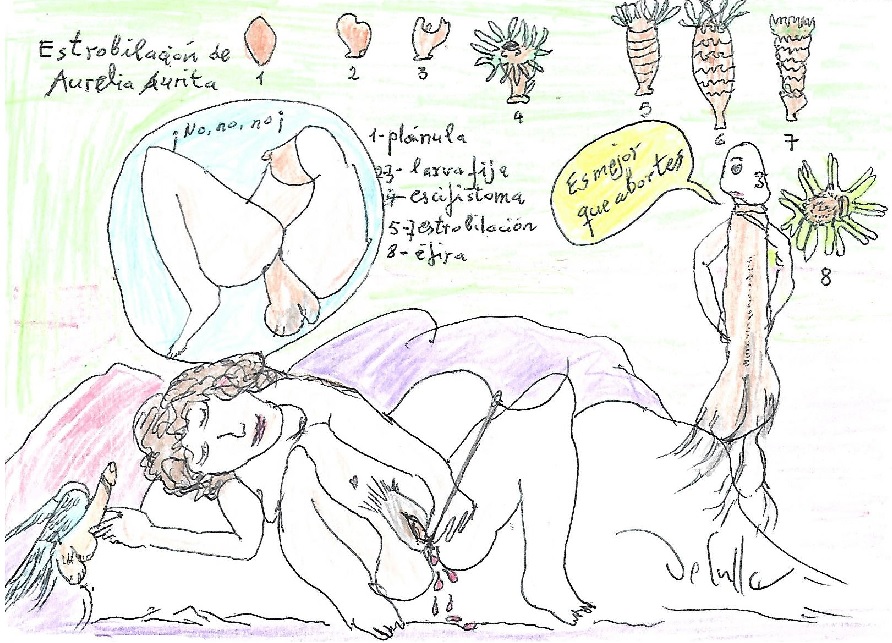 Estrobilación de
Aurelia aurita
1
2
3
4
5
6
7
¡No, no, no!
1-plánula
23-larva fija
4-escifistoma
5-7 estrobilación
8-éfira
Es mejor
que abortes
8